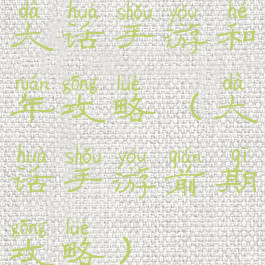 dà huà shǒu yóu hé
大话手游和
nián gōng lüè dà
年攻略（大
huà shǒu yóu qián qī
话手游前期
gōng lüè
攻略）